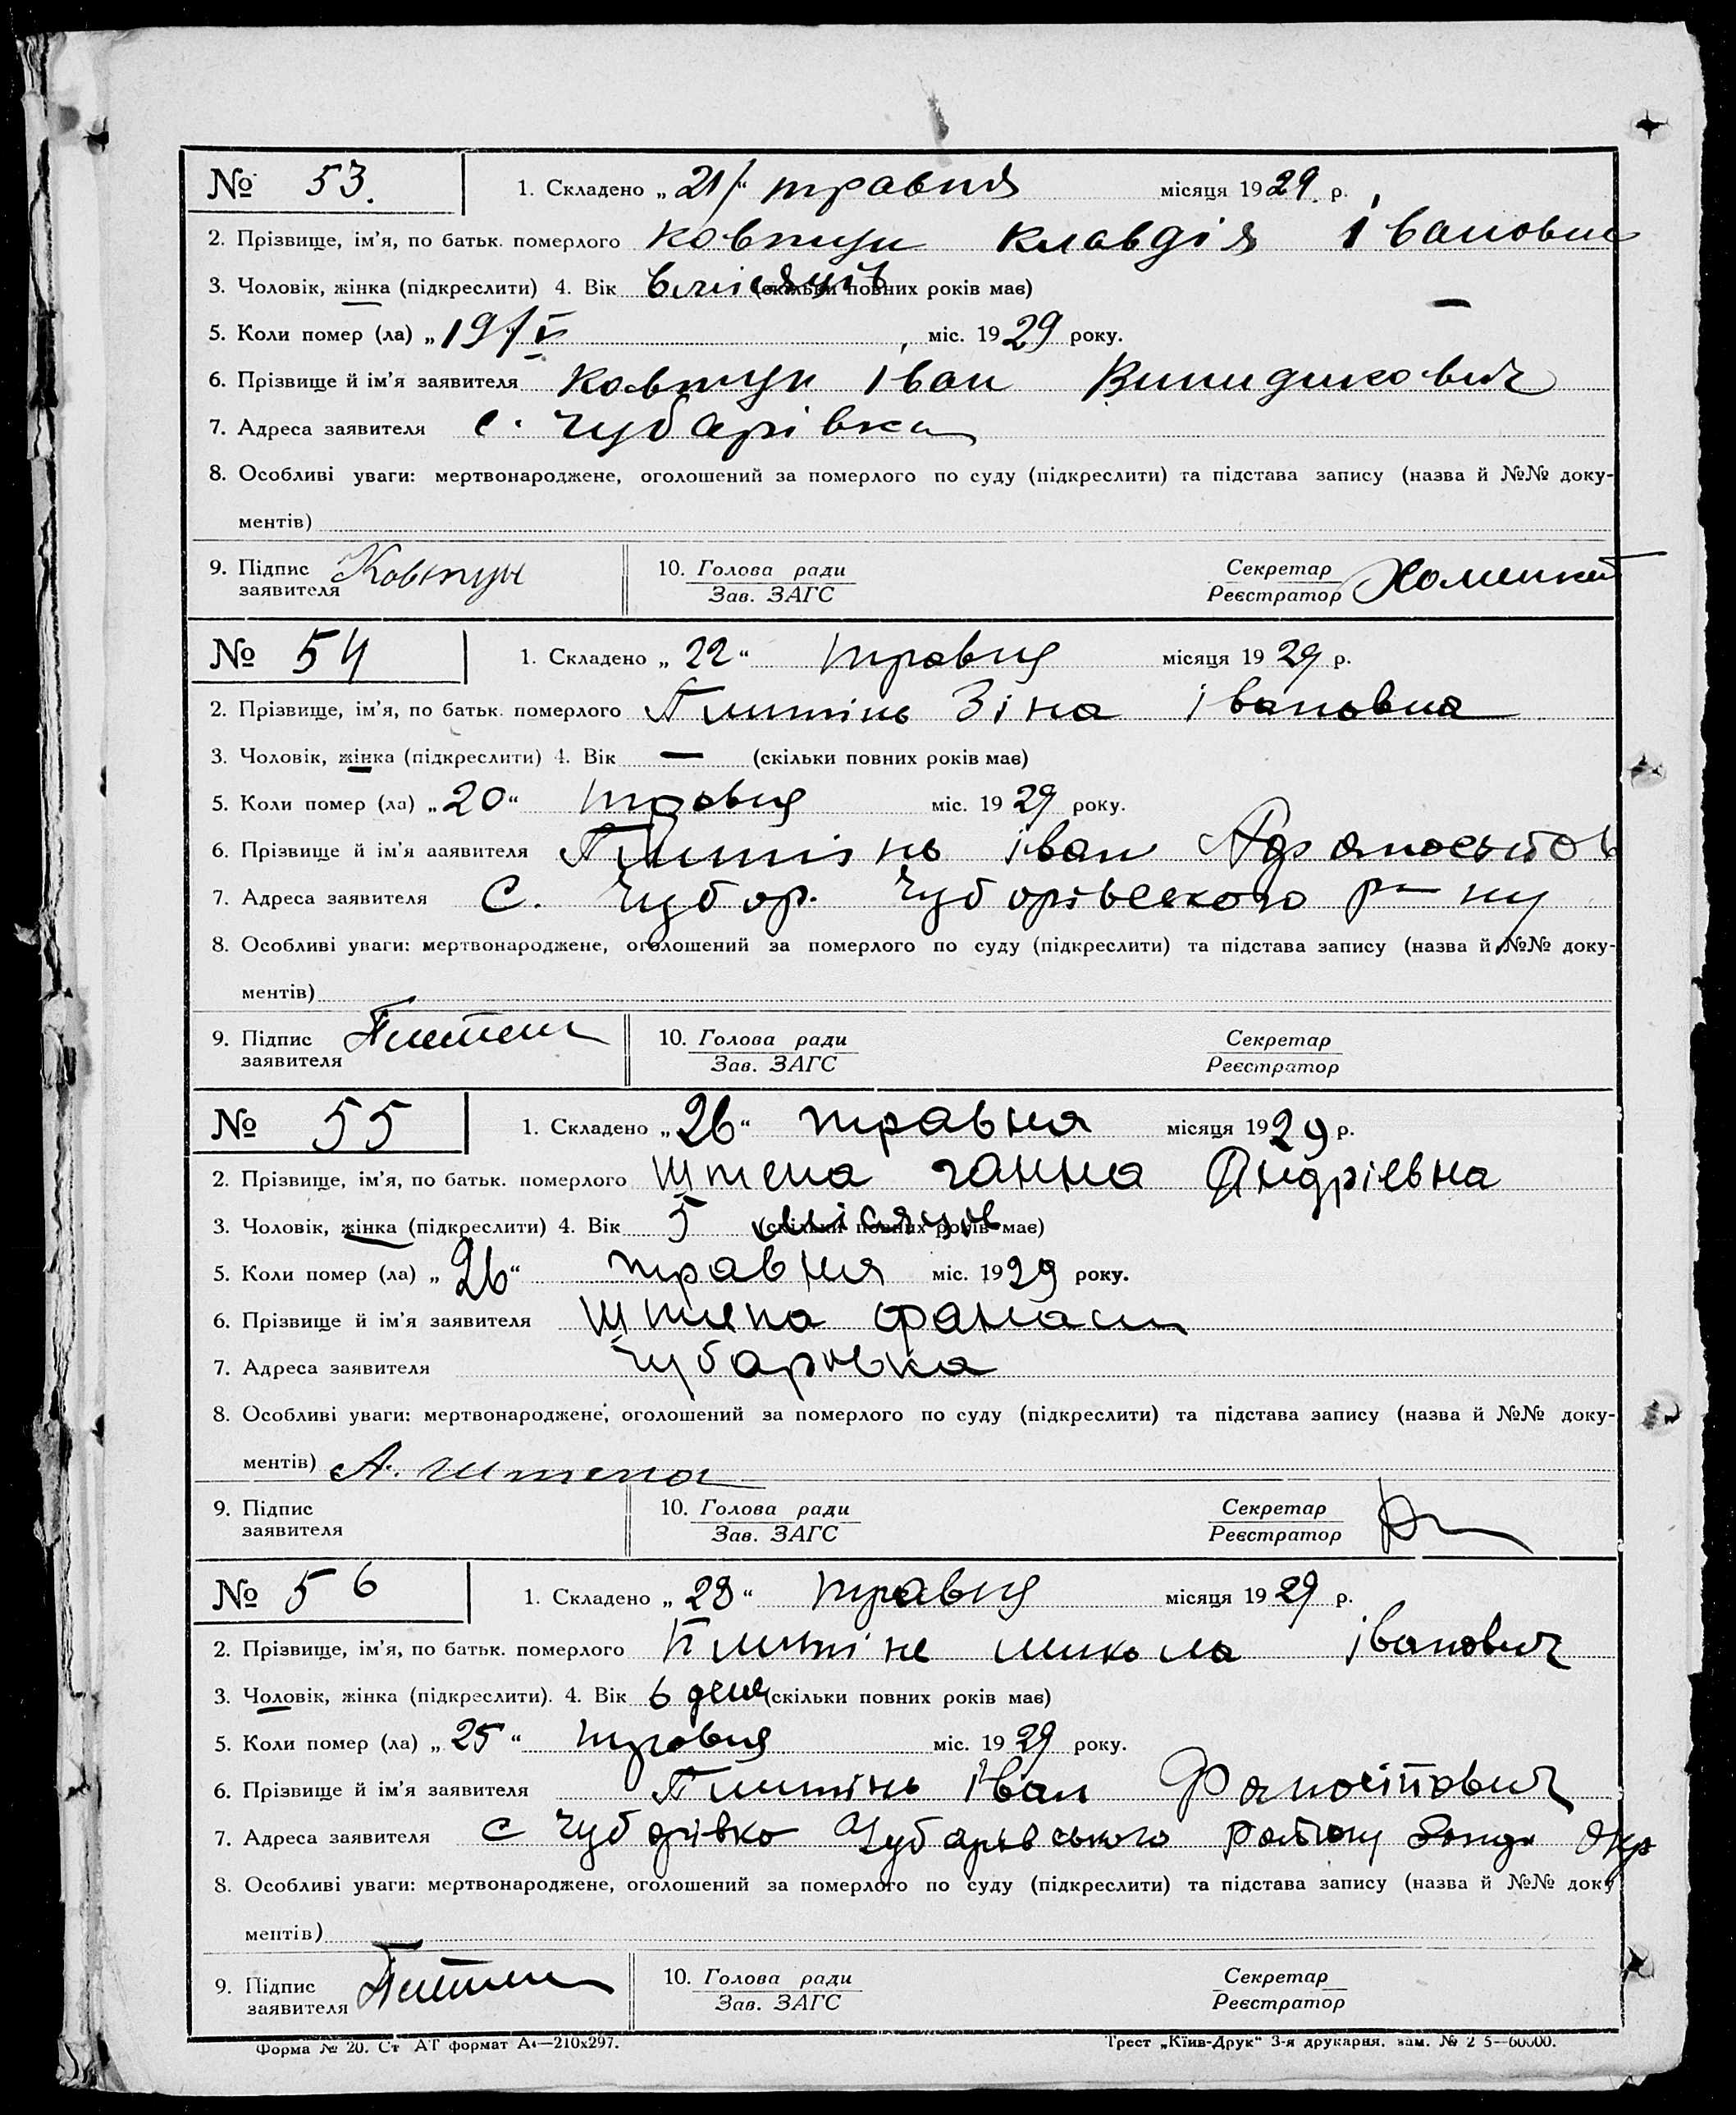 № 53. 1. Складено „21/“ травня місяця 1929. р.
2. Прізвище, ім’я, по батьк. померлого Ковтун Клавдія Івановна
3. Чоловік, жінка (підкреслити) 4. Вік 6 місяців (скільки повних років має)
5. Коли помер (ла) „19/“ V міс. 1929 року.
6. Прізвище й ім’я заявителя Ковтун Іван
7. Адреса заявителя с. Чубарівка
8. Особливі уваги: мертвонароджене, оголошений за померлого по суду (підкреслити) та підстава запису (назва й №№ доку-
ментів)
9. Підпис заявителя Ковтун 10. Голова ради Секретар
Зав. ЗАГС Реєстратор
№ 54 1. Складено „22“ травня місяця 1929 р.
2. Прізвище, ім’я, по батьк. померлого Плитінь Зіна Івановна
3. Чоловік, жінка (підкреслити) 4. Вік — (скільки повних років має)
5. Коли помер (ла) „20“ травня міс. 1929 року.
6. Прізвище й ім’я заявителя Плитінь Іван
7. Адреса заявителя С. Чубар. Чубарівського р-ну
8. Особливі уваги: мертвонароджене, оголошений за померлого по суду (підкреслити) та підстава запису (назва й №№ доку-
ментів)
9. Підпис заявителя 10. Голова ради Секретар
Зав. ЗАГС Реєстратор
№ 55 1. Складено „26“ травня місяця 1929 р.
2. Прізвище, ім’я, по батьк. померлого Штепа Ганна Андріевна
3. Чоловік, жінка (підкреслити) 4. Вік 5 місяців (скільки повних років має)
5. Коли помер (ла) „26“ травня міс. 1929 року.
6. Прізвище й ім’я заявителя Штепа
7. Адреса заявителя Чубарівка
8. Особливі уваги: мертвонароджене, оголошений за померлого по суду (підкреслити) та підстава запису (назва й №№ доку-
ментів) А. Штепа
9. Підпис заявителя 10. Голова ради Секретар
Зав. ЗАГС Реєстратор
№ 56 1. Складено „28“ травня місяця 1929 р.
2. Прізвище, ім’я, по батьк. померлого Плитінь Микола Іванович
3. Чоловік, жінка (підкреслити). 4. Вік 6 день (скільки повних років має)
5. Коли помер (ла) „25“ травня міс. 1929 року.
6. Прізвище й ім’я заявителя Плитінь Іван
7. Адреса заявителя с Чубарівка Чубарівського району Запор Окр
8. Особливі уваги: мертвонароджене, оголошений за померлого по суду (підкреслити) та підстава запису (назва й №№ доку
ментів)
9. Підпис заявителя 10. Голова ради Секретар
Зав. ЗАГС Реєстратор
Форма № 20. Ст АТ формат А4—210х297. Трест „Київ-Друк“ 3-я друкарня. зам. № 2 5—60000.